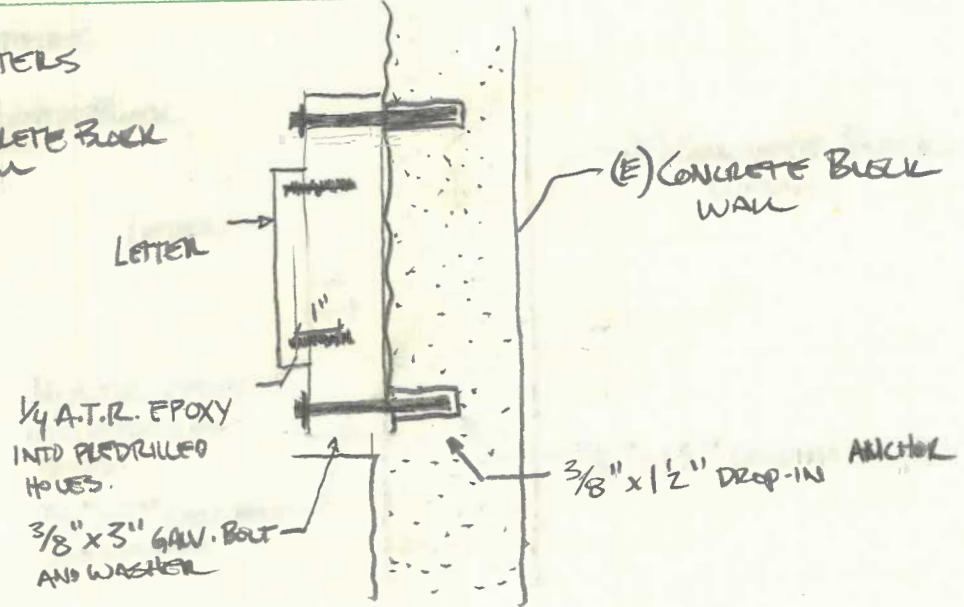 CONCRETE BLOCK
(E) CONCRETE BLOCK
WALL
LETTER
1"
1/4 A.T.R. EPOXY
INTO PREDRILLED
HOLES.
3/8" x 3" GALV. BOLT
AND WASHER
3/8" x 1 1/2" DROP-IN ANCHOR